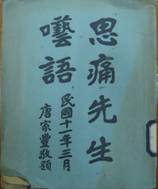 思痛先生
囈語
民國十一年三月
唐家豐敬題